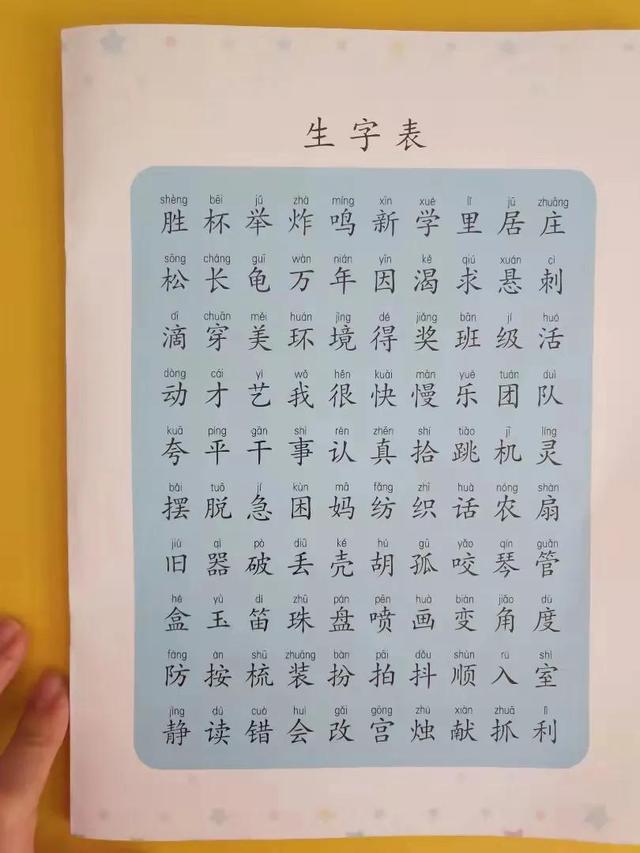 生字表
shèng bēi jǔ zhà míng xīn xué lǐ jū zhuāng
胜 杯 举 炸 鸣 新 学 里 居 庄
sōng cháng guī wàn nián yīn kě qiú xuán cì
松 长 龟 万 年 因 渴 求 悬 刺
dī chuān měi huán jìng dé jiǎng bān jí huó
滴 穿 美 环 境 得 奖 班 级 活
dòng cái yì wǒ hěn kuài màn yuè tuán duì
动 才 艺 我 很 快 慢 乐 团 队
kuā píng gān shì rèn zhēn shí tiào jī líng
夸 平 干 事 认 真 拾 跳 机 灵
bǎi tuō jí kùn mā fǎng zhī huà nóng shàn
摆 脱 急 困 妈 纺 织 话 农 扇
jiù qì pò diū ké hú gū yǎo qín guǎn
旧 器 破 丢 壳 胡 孤 咬 琴 管
hé yù dí zhū pán pēn huà biàn jiǎo dù
盒 玉 笛 珠 盘 喷 画 变 角 度
fáng àn shū zhuāng bàn pāi dǒu shùn rù shì
防 按 梳 装 扮 拍 抖 顺 入 室
jìng dú cuò huì gǎi gōng zhú xiàn zhuā lì
静 读 错 会 改 宫 烛 献 抓 利